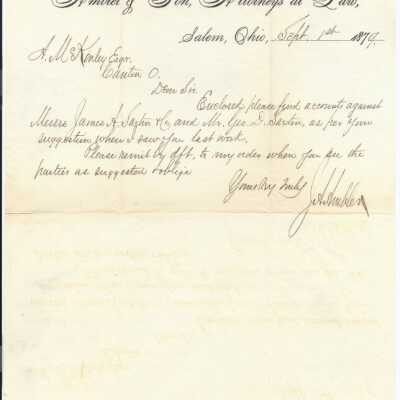 Ambler & Son, Attorneys at Law,
Salem, Ohio, Sept. 1st 1879.
A. McKinley Esqr.
Canton O.
Dear Sir
Enclosed please find accounts against
Messrs James A. Saxton & Co and Mr. Geo. D. Saxton, as per your
suggestion when I saw you last week.
Please remit by dft. to my order when you see the
parties as suggested & oblige
Yours Very Truly
J. A. Ambler